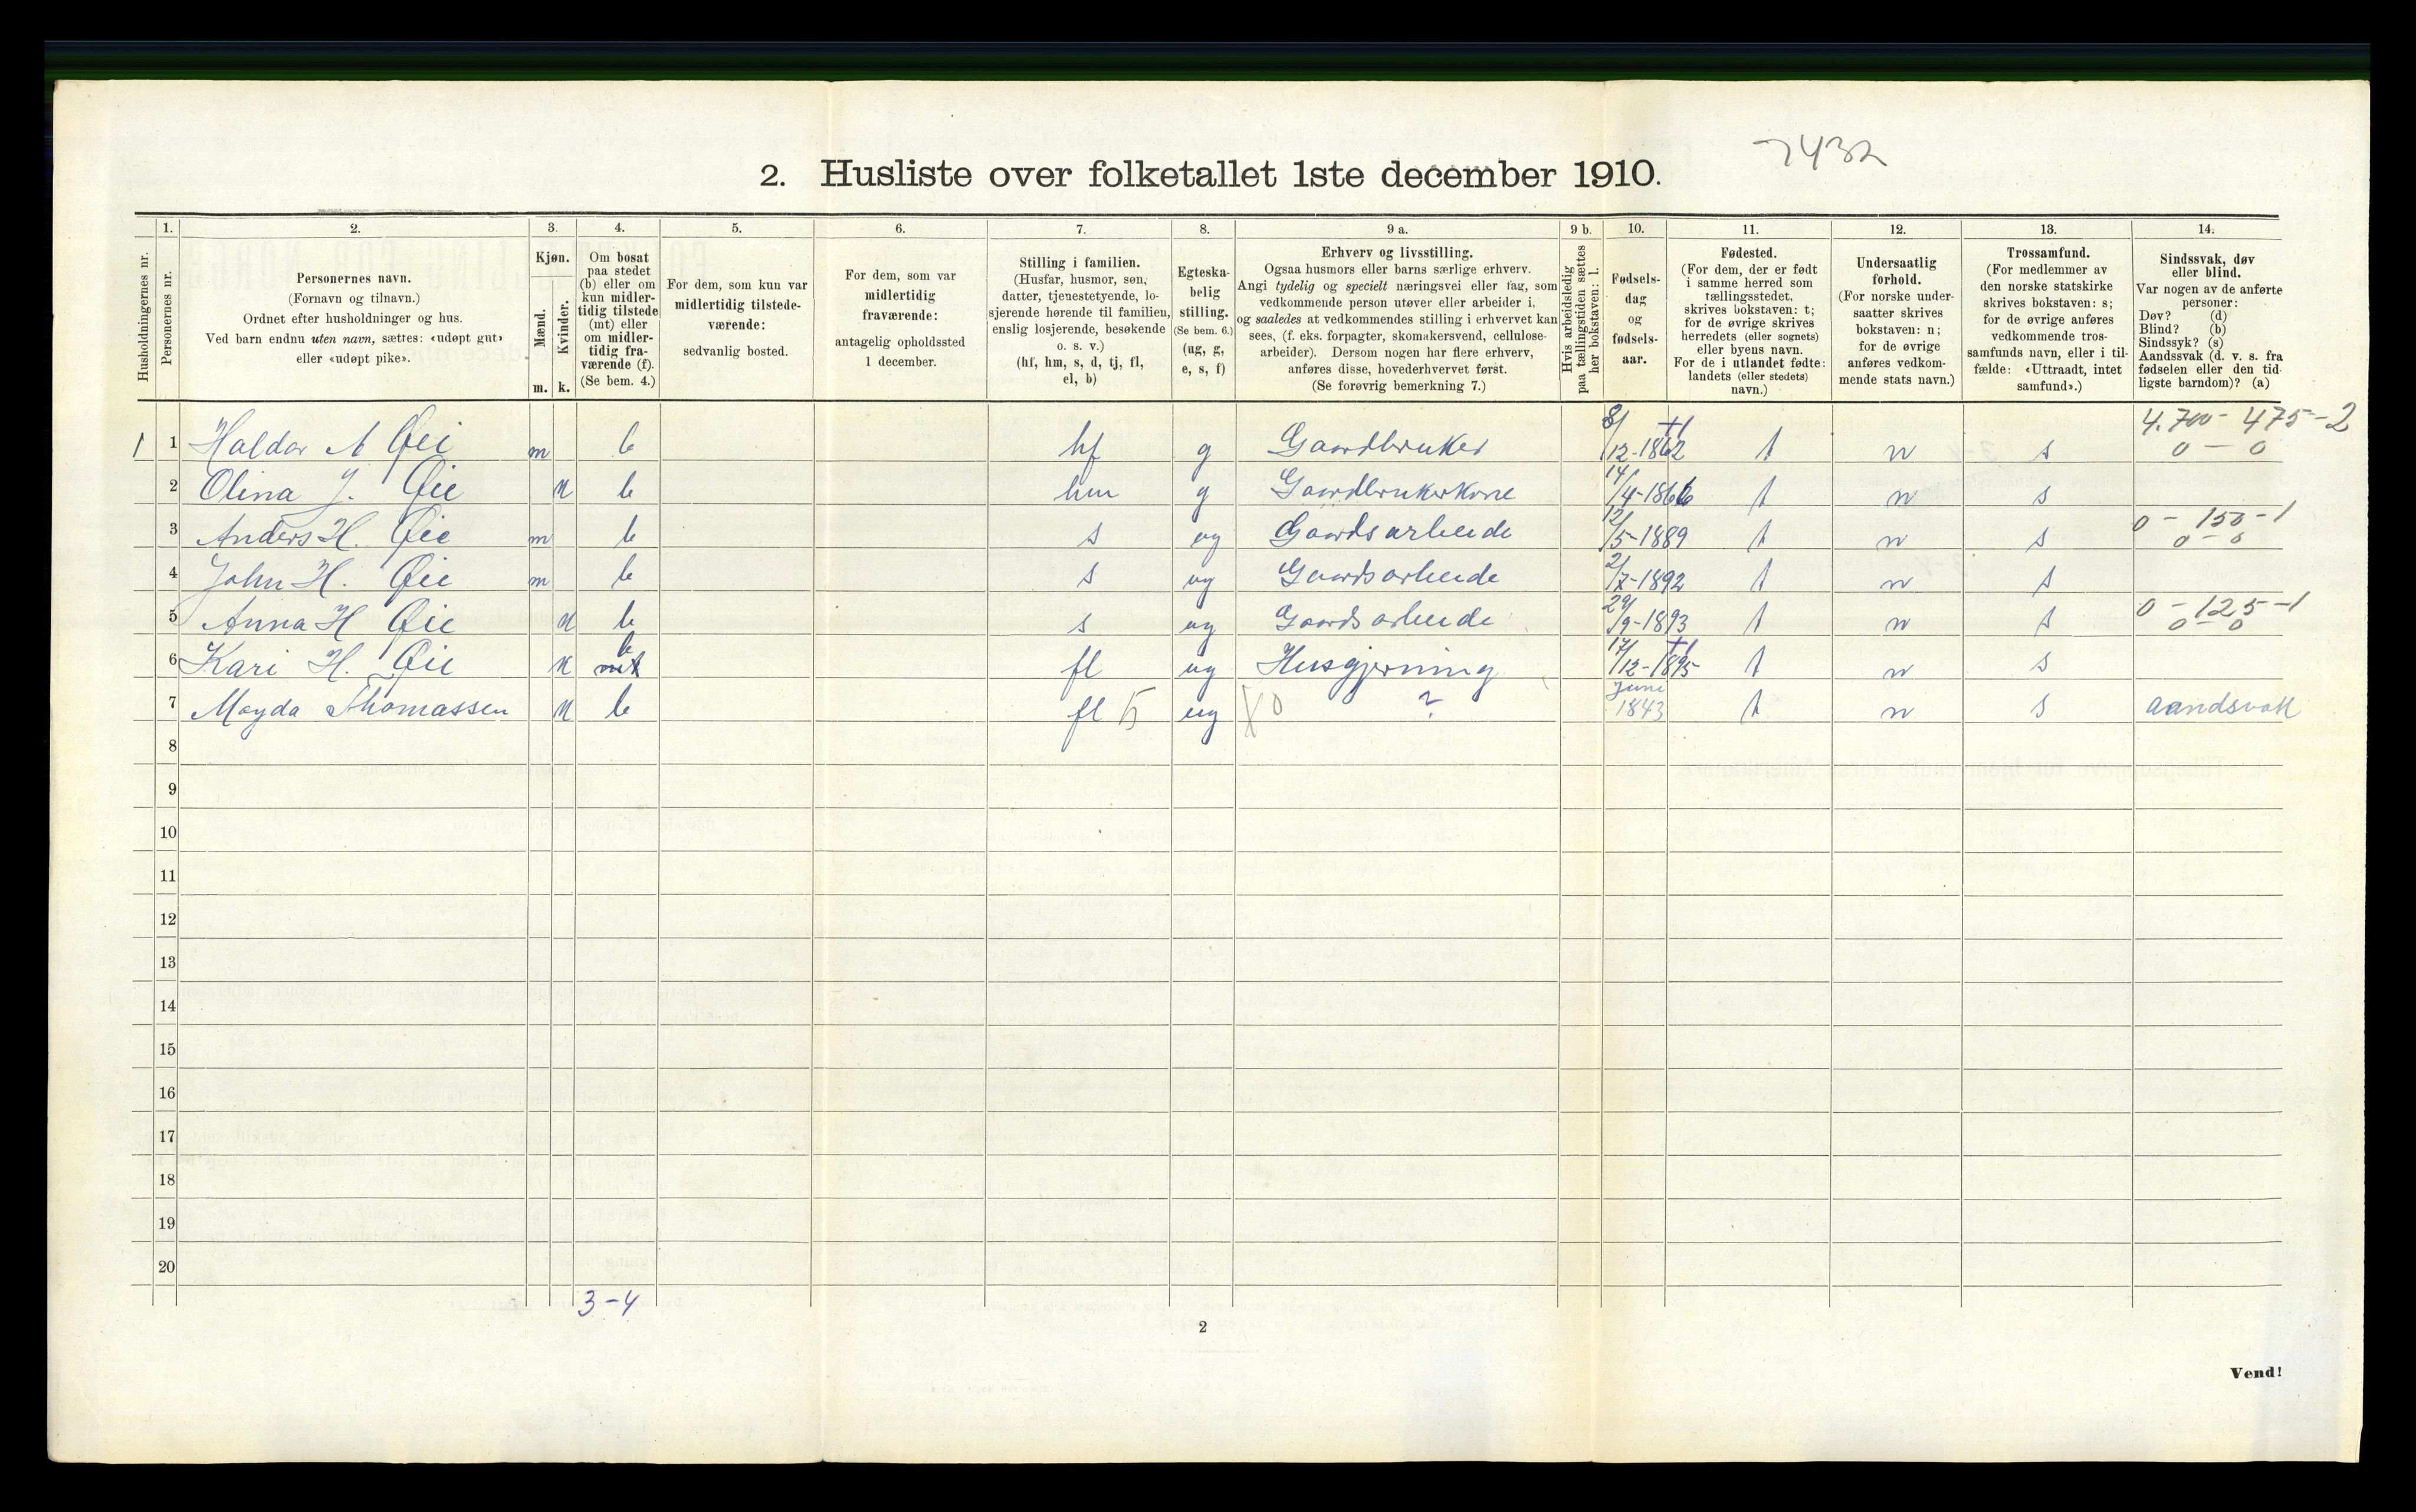 7432
2. Husliste over folketallet 1ste december 1910.
Husholdningernes nr.
1.
Personernes nr.
2.
Personernes navn.
(Fornavn og tilnavn.)
Ordnet efter husholdninger og hus.
Ved barn endnu uten navn, sættes: «udøpt gut»
eller «udøpt pike».
3.
Kjøn.
Mænd.
Kvinder.
m. k.
4.
Om bosat
paa stedet
(b) eller om
kun midler-
tidig tilstede
(mt) eller
om midler-
tidig fra-
værende (f).
(Se bem. 4.)
5.
For dem, som kun var
midlertidig tilstede-
værende:
sedvanlig bosted.
6.
For dem, som var
midlertidig
fraværende:
antagelig opholdssted
1 december.
7.
Stilling i familien.
(Husfar, husmor, søn,
datter, tjenestetyende, lo-
sjerende hørende til familien,
enslig losjerende, besøkende
o. s. v.)
(hf, hm, s, d, tj, fl,
el, b)
8.
Egteska-
belig
stilling.
(Se bem. 6.)
(ug, g,
e, s, f)
9 a.
Erhverv og livsstilling.
Ogsaa husmors eller barns særlige erhverv.
Angi tydelig og specielt næringsvei eller fag, som
vedkommende person utøver eller arbeider i,
og saaledes at vedkommendes stilling i erhvervet kan
sees, (f. eks. forpagter, skomakersvend, cellulose-
arbeider). Dersom nogen har flere erhverv,
anføres disse, hovederhvervet først.
(Se forøvrig bemerkning 7.)
9 b.
Hvis arbeidsledig
paa tællingstiden sættes
her bokstaven: l.
10.
Fødsels-
dag
og
fødsels-
aar.
11.
Fødested.
(For dem, der er født
i samme herred som
tællingsstedet,
skrives bokstaven: t;
for de øvrige skrives
herredets (eller sognets)
eller byens navn.
For de i utlandet fødte:
landets (eller stedets)
navn.)
12.
Undersaatlig
forhold.
(For norske under-
saatter skrives
bokstaven: n;
for de øvrige
anføres vedkom-
mende stats navn.)
13.
Trossamfund.
(For medlemmer av
den norske statskirke
skrives bokstaven: s;
for de øvrige anføres
vedkommende tros-
samfunds navn, eller i til-
fælde: «Uttraadt, intet
samfund».)
14.
Sindssvak, døv
eller blind.
Var nogen av de anførte
personer:
Døv? (d)
Blind? (b)
Sindssyk? (s)
Aandssvak (d. v. s. fra
fødselen eller den tid-
ligste barndom)? (a)
1 1 Haldor A Øie m b hf g Gaardbruker 8/12-1862 t n s 4.700-475-2 0-0
2 Olina J. Øie k b hm g Gaardbrukerkone 14/4-1866 t n s
3 Anders H. Øie m b s ug Gaardsarbeide 12/5-1889 t n s 0-150-1 0-0
4 John H. Øie m b s ug Gaardsarbeide 2/7-1892 t n s
5 Anna H Øie k b s ug Gaardsarbeide 29/9-1893 t n s 0-125-1 0-0
6 Kari H. Øie k mt b fl ug Husgjerning 17/12-1895 t n s
7 Magda Thomassen k b fl 5 ug X 0 ? Juni 1843 t n s aandsvak
8
9
10
11
12
13
14
15
16
17
18
19
20
3-4
2
Vend!